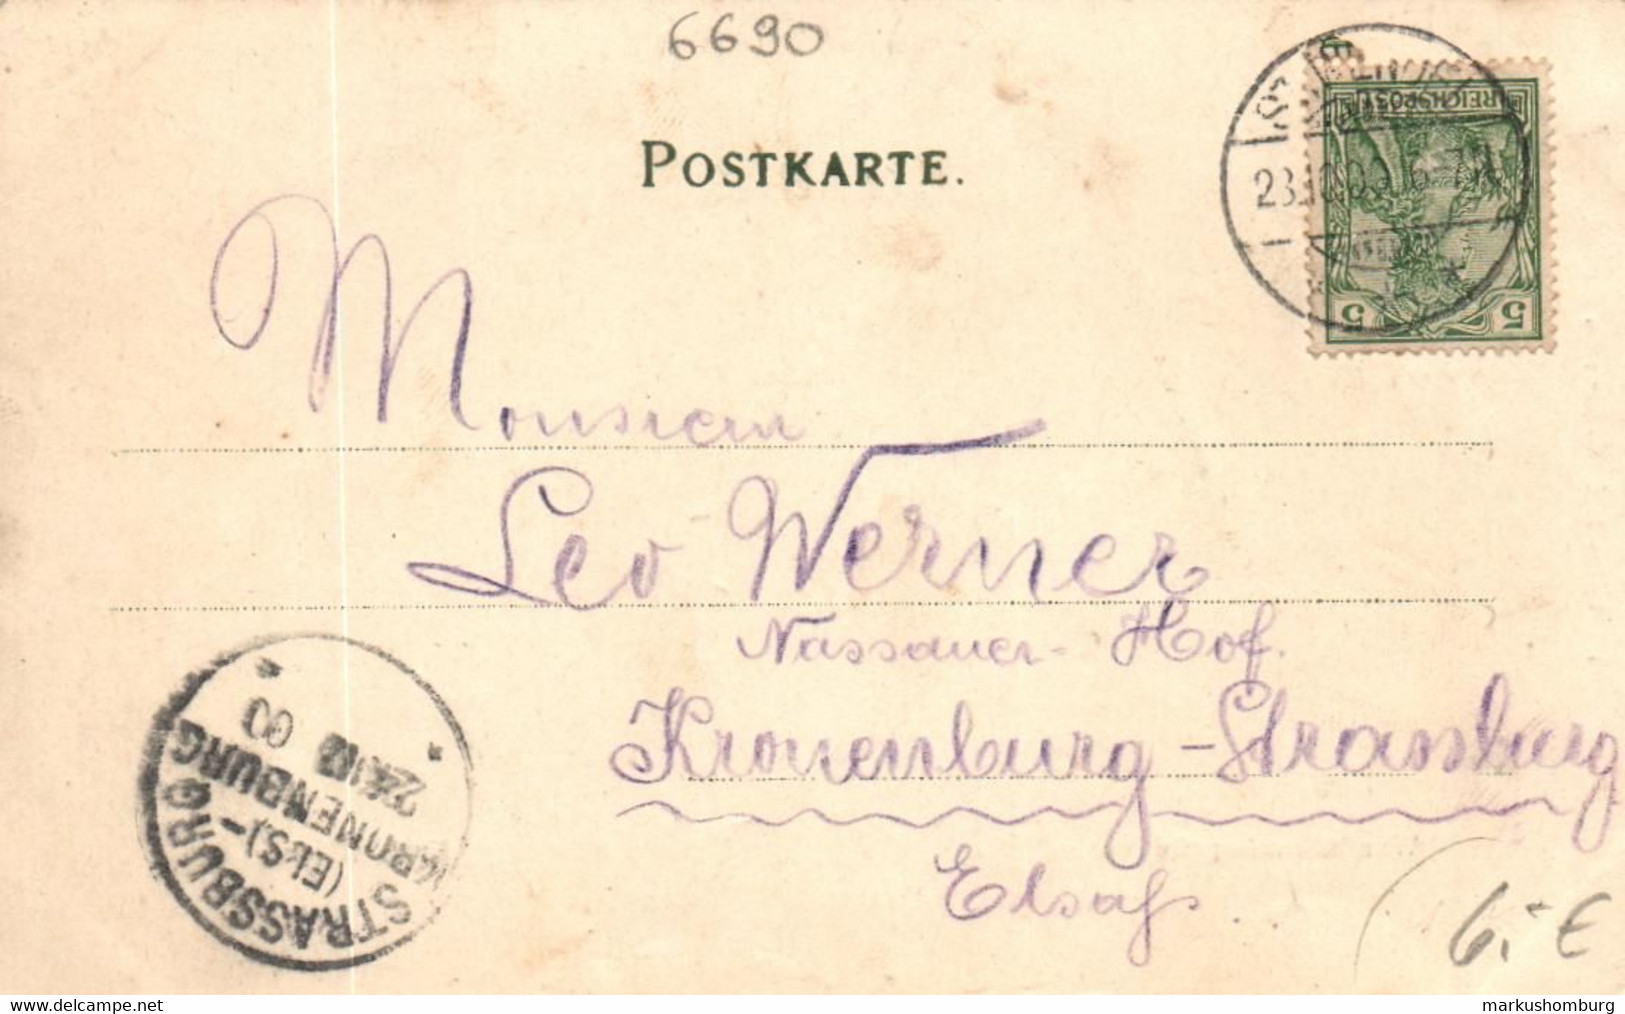 6690
POSTKARTE.
REICHSPOST
5 5
Monsieur
Leo Werner
Nassauer-Hof.
Kronenburg-Strassburg
Elsaß.
STRASSBURG-
(ELS.)
KRONENBURG
24.10 00
6.- €
www.delcampe.net
markushomburg